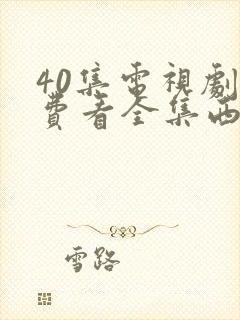 40集電視劇
費看全集西
雪路